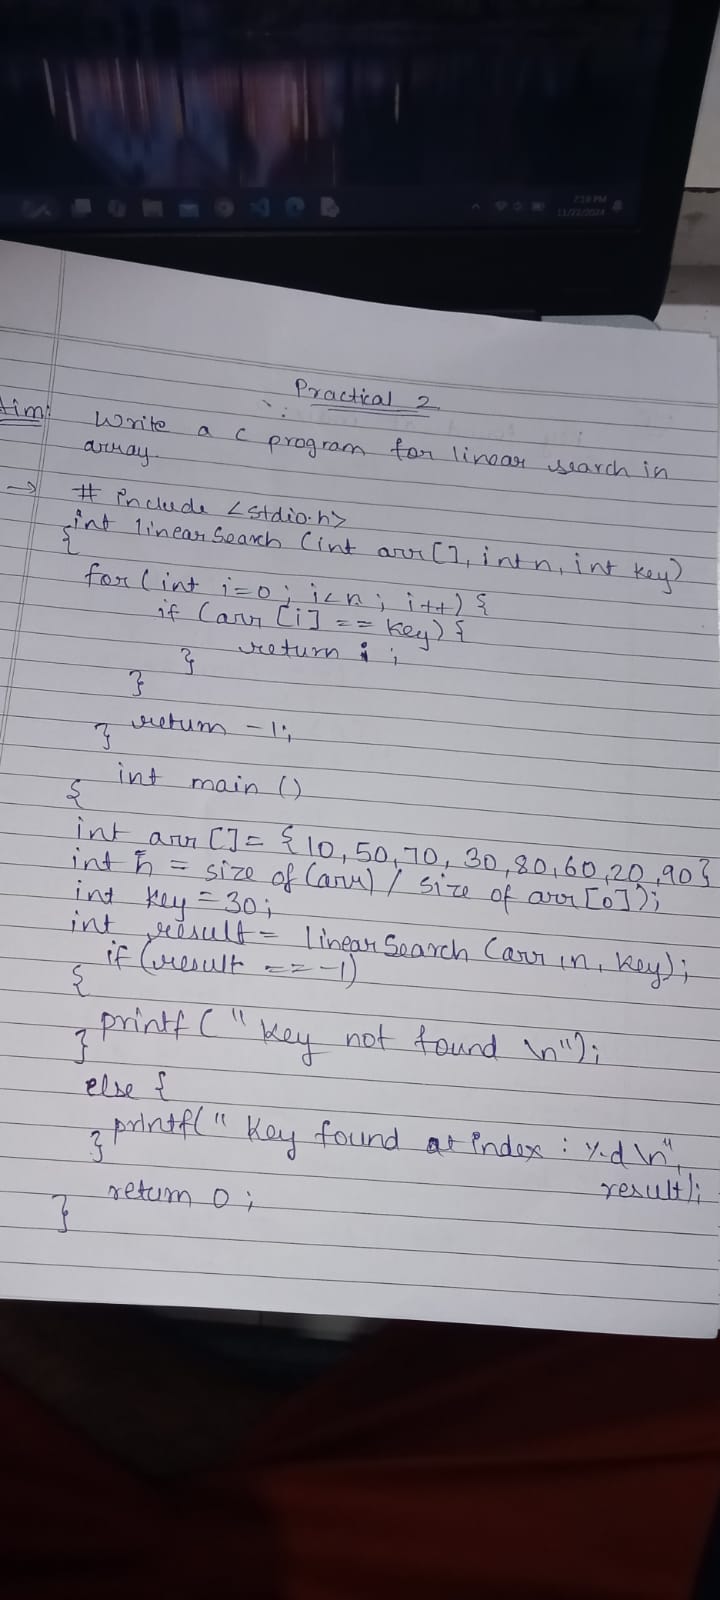 7:18 PM
11/22/2024
Practical 2
Aim:
Write a c program for linear search in
array.
→ # include <stdio.h>
int linearSearch (int arr[], int n, int key)
{
for (int i=0; i<n; i++) {
if (arr [i] == key) {
return i ;
}
}
return -1;
}
int main ()
{
int arr []= {10,50,70, 30,80,60,20,90}
int n = size of (arr) / size of arr[0]);
int key = 30;
int result = linearSearch (arr, n, key);
if (result == -1)
{
printf (" Key not found \n");
}
else {
printf(" Key found at index : %d \n",
result);
}
return 0 ;
}